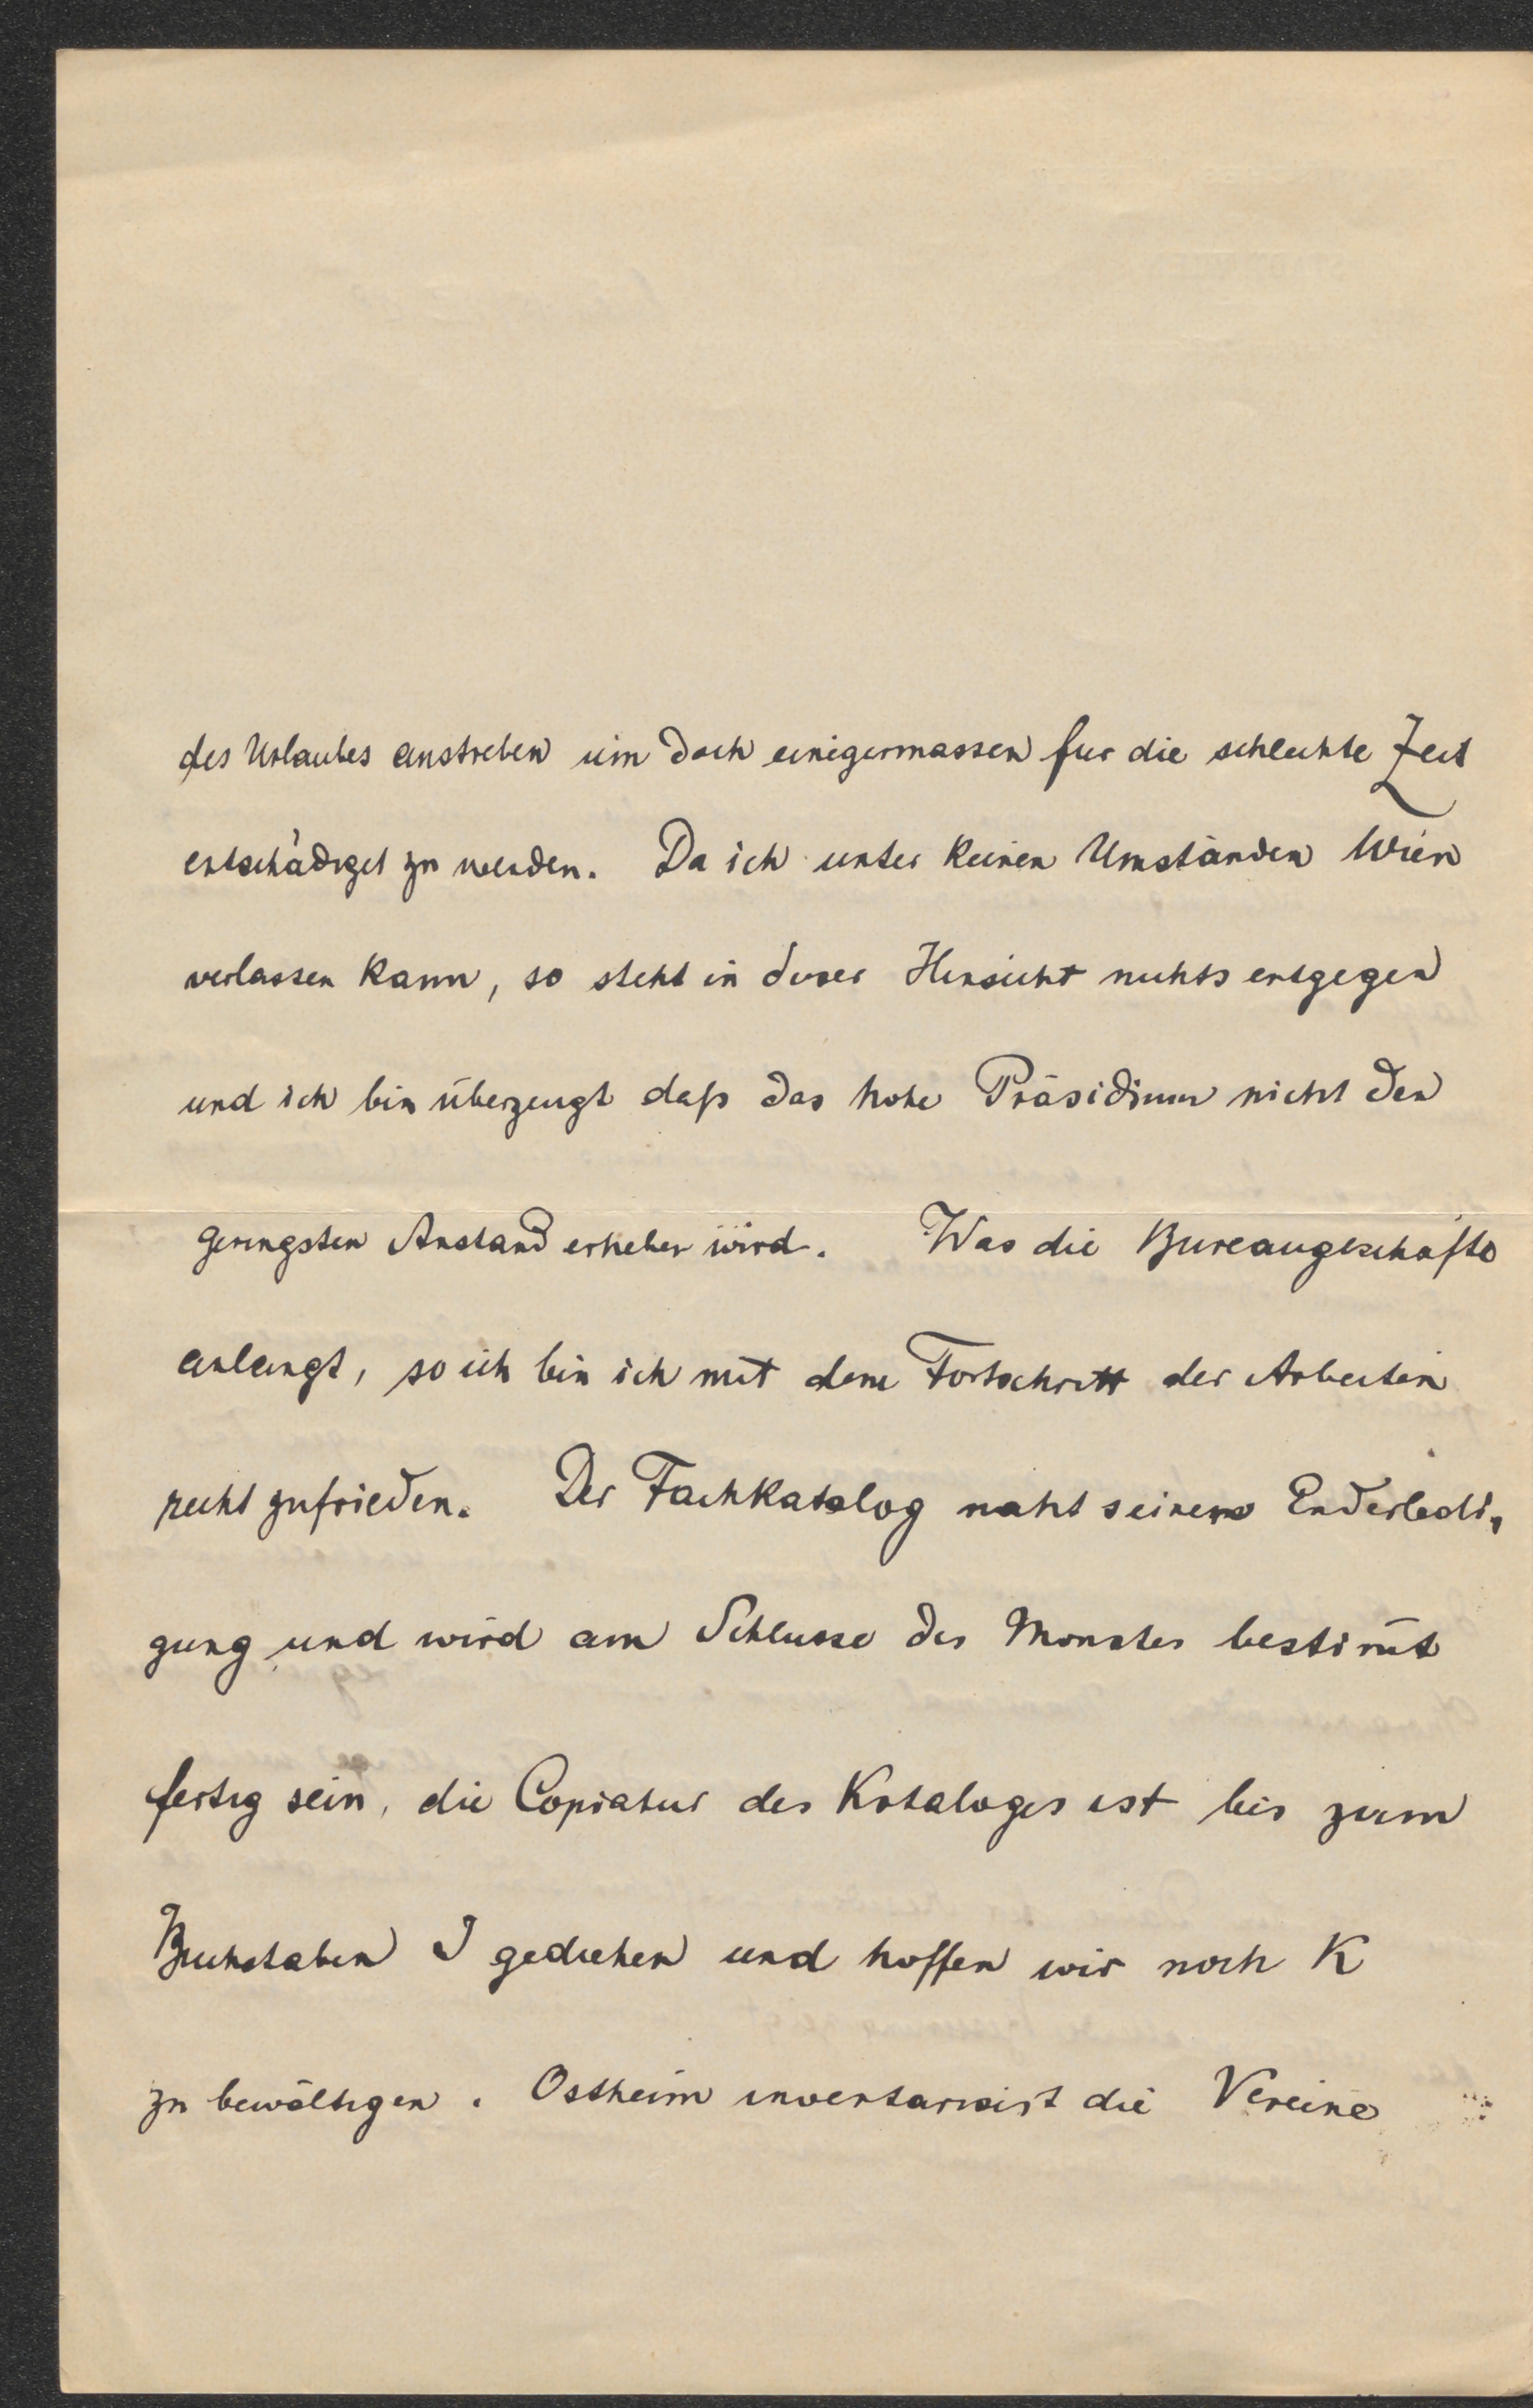 des Urlaubes anstreben um doch einigermassen fur die schlechte Zeit
entschädiget zu werden. Da ich unter keinen Umständen Wien
verlassen kann, so steht in dieser Hinsicht nichts entgegen
und ich bin überzeugt daß das hohe Präsidium nicht den
geringsten Anstand erheben wird. Was die Bureaugeschäfte
anlangt, so ich bin ich mit dem Fortschritt der Arbeiten
recht zufrieden. Der Fachkatalog naht seinem Enderledi-
gung und wird am Schlusse des Monates bestim̄t
fertig sein, die Copiatur des Kataloges ist bis zum
Buchstaben I gediehen und hoffen wir noch K
zu bewältigen. Ostheim inventarisirt die Vereine